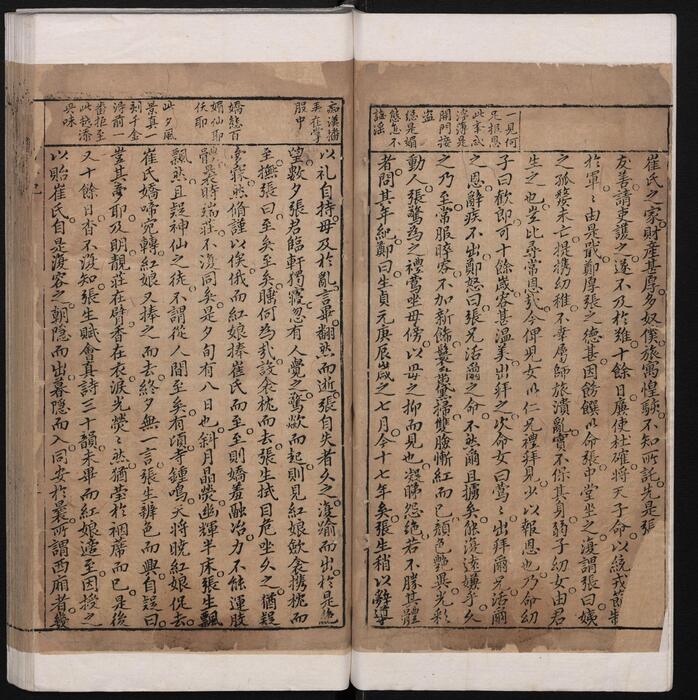 一見何
足報恩
開門接
盗
總是媚
態怎不
崔氏之家財産甚厚多奴僕旅寓惶駭不知所託先是張
友善請吏護之遂不及於難十餘日廉使杜確將天子命以統戎節
於軍〻由是戢鄭厚張之德甚因飭饌以命張中堂坐之復謂張曰姨
之孤嫠未亡提携幼稚不幸屬師旅潰亂實不保其身弱子幼女由君
生之也豈比尋常恩哉今俾兒女以仁兄禮拜見少以報恩也乃命幼
子曰歡郎可十餘歲容甚温美出拜之次命女曰鶯〻出拜爾兄活爾
之恩辭疾不出鄭怒曰張兄活爾之命不然爾且擄矣能復遠嫌乎久
之乃至常服睟容不加新飾鬟黛掃雙臉慚紅而已顔色艷異光彩
動人張驚為之禮鶯坐母傍以母之抑而見也凝睇怨絶若不勝其體
者問其年紀鄭曰生貞元庚辰歲之七月今十七年矣張生稍以辭導
痴漢猶
在掌
股中
嬌態百
媚仙耶
妖耶
此夕風
景真一
刻千金
詩前一
番拒至
此越添
興味
以礼自持毋及於亂言畢翻然而逝張自失者久之復踰而出於是絶
望數夕張君臨軒獨寢忽有人覺之驚欻而起則見紅娘歛衾携枕而
至撫張曰至矣至矣睡何為哉設衾枕而去張生拭目危坐久之猶疑
夢寐然脩謹以俟俄而紅娘捧崔氏而至至則嬌羞融冶力不能運肢
體曩時端莊不復同矣是夕旬有八日也斜月晶熒幽輝半床張生飄
飄然且疑神仙之徒不謂從人間至矣有頃寺鐘鳴天將曉紅娘促去
崔氏嬌啼宛轉紅娘又捧之而去終夕無一言張生辨色而興自疑曰
豈其夢耶及明靚莊在臂香在衣淚光熒〻然猶瑩於裀蓆而已是後
又十餘日杳不復知張生賦會真詩三十韻未畢而紅娘適至因授之
以貽崔氏自是復容之朝隱而出暮隱而入同安於曩所謂西廂者幾